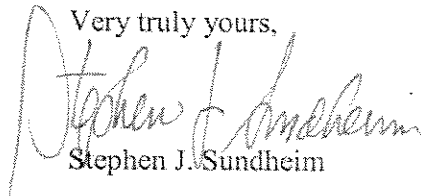 Very truly yours,
Stephen J. Sundheim
Stephen J. Sundheim